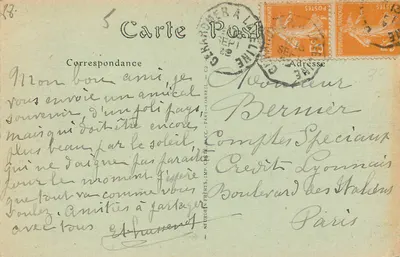 88.
5
Carte Pos
Correspondance
Adresse
GERARDMER A LAVELINE
Mon bon ami, je
vous envoie un amical
souvenir, d'un joli pays,
mais qui doit être encore
plus beau par le soleil,
qui ne daigne pas paraître
pour le moment. J'espère
que tout va comme vous
voulez. Amitiés à partager
avec tous
Monsieur
Bernier
Comptes Spéciaux
Crédit Lyonnais
Boulevard des Italiens
Paris